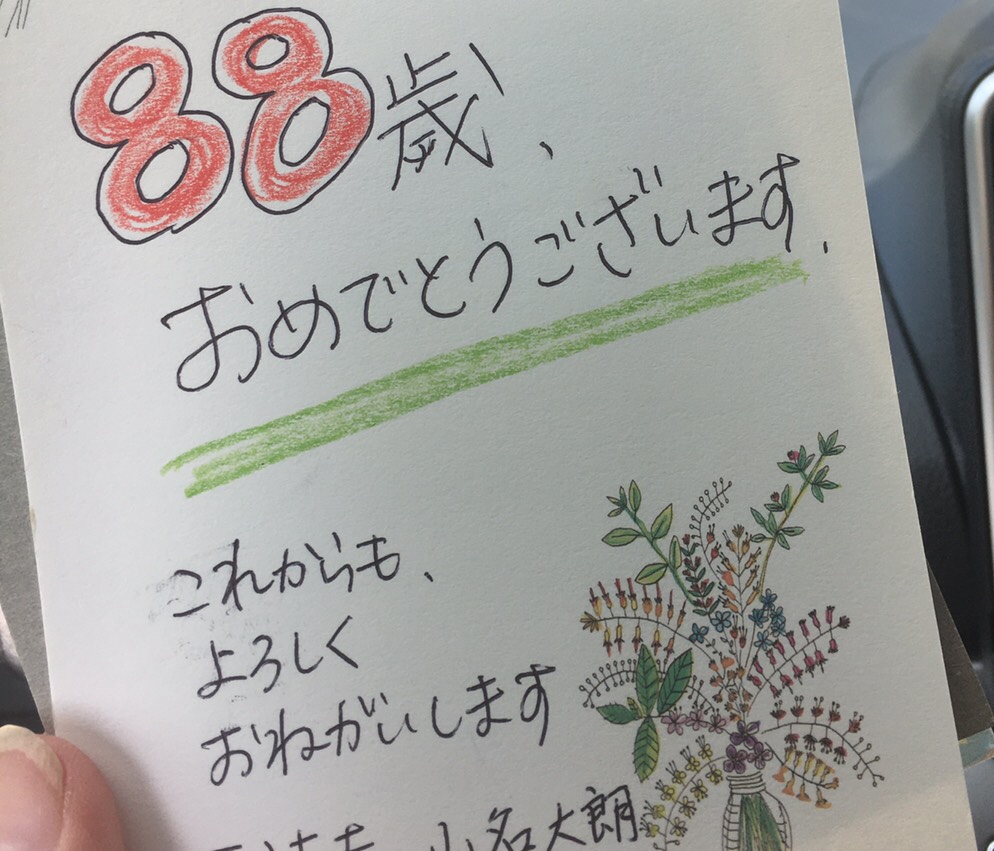 88歳、
おめでとうございます.
これからも、
よろしく
おねがいします
小名太朗